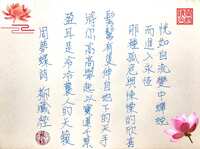 恍如自流變中蟬蛻
而進入永恆
那種孤危與悚慄的欣喜
髣髴有隻伸自地下的天手
將你高高舉起以寶蓮千葉
盈耳是冷冷襲人的天籟
周夢蝶詩
鄒